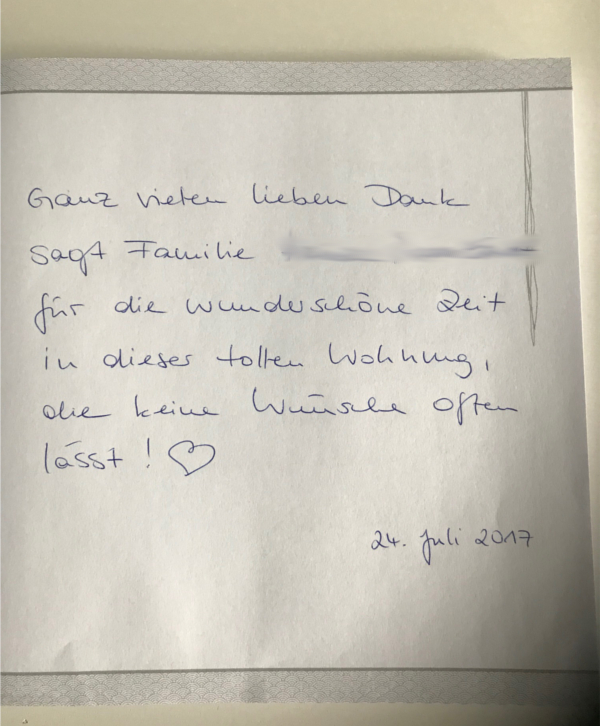 Ganz vielen lieben Dank
sagt Familie
für die wunderschöne Zeit
in dieser tollen Wohnung,
die keine Wünsche offen
lässt! ♡
24. Juli 2017